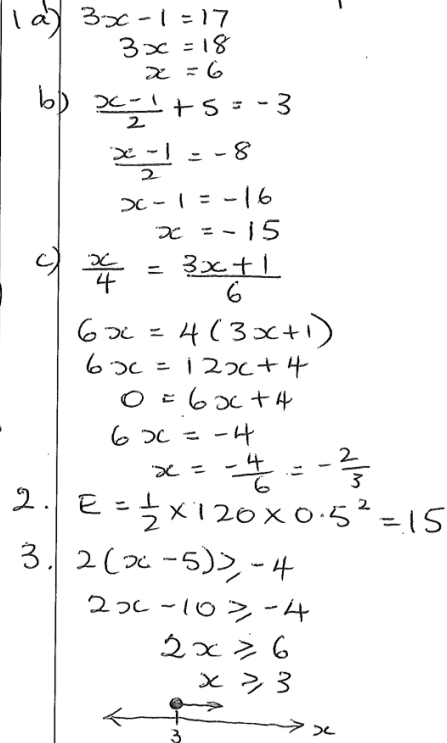 1 a) 3x - 1 = 17
3x = 18
x = 6
b) (x - 1)/2 + 5 = -3
(x - 1)/2 = -8
x - 1 = -16
x = -15
c) x/4 = (3x + 1)/6
6x = 4(3x+1)
6x = 12x + 4
0 = 6x + 4
6x = -4
x = -4/6 = -2/3
2. E = 1/2 × 120 × 0.5² = 15
3. 2(x - 5) ≥ -4
2x - 10 ≥ -4
2x ≥ 6
x ≥ 3
3 x